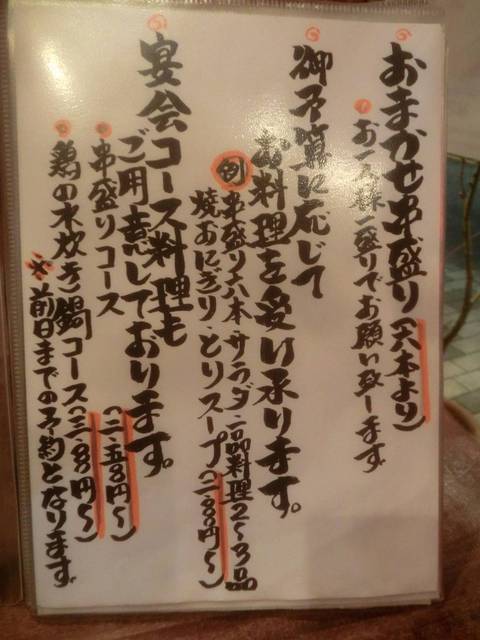 おまかせ串盛り(六本より)
お一人様一盛りでお願い致します
御予算に応じて
お料理を受け承ります。
例 串盛り六本・サラダ・一品料理2〜3品
焼おにぎり・とりスープ
宴会コース料理も
ご用意しております。
串盛りコース
鶏の水炊き鍋コース
※前日までの予約となります